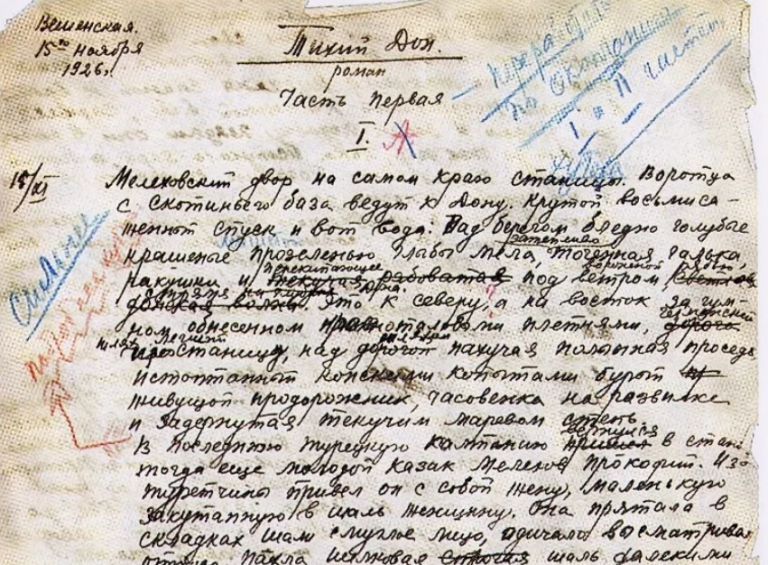 Вешенская.
15го ноября
1926г.
Тихий Дон.
роман
Часть первая
I.
по окончании
I и II частей
15/XI
Мелеховский двор на самом краю станицы. Воротца
с скотиньего база ведут к Дону. Крутой восьмиса-
женный спуск и вот вода. Над берегом бледно голубые
крашеные прозеленью глыбы мела,
затейливо
точенная галька
ракушки и
перекипающее
текучая рябоватая под ветром
вороненой рябью,
донская волна. Это к северу, а на восток за гум-
ном, обнесенном красноталовыми плетнями,
станицу, над дорогой пахучая полынная проседь
истоптанный конскими копытами бурый
живущой придорожник, часовенка на развилке
и задернутая текучим маревом степь.
В последнюю турецкую кампанию
вернулся
пришел в стан
тогда еще молодой казак Мелехов Прокофий. Из
туретчины привел он с собой жену, маленькую
закутанную в шаль женщину. Она прятала в
складках шали смуглое лицо, одичало высматрива
Пахла шелковая строгая шаль далекими
Сильнее